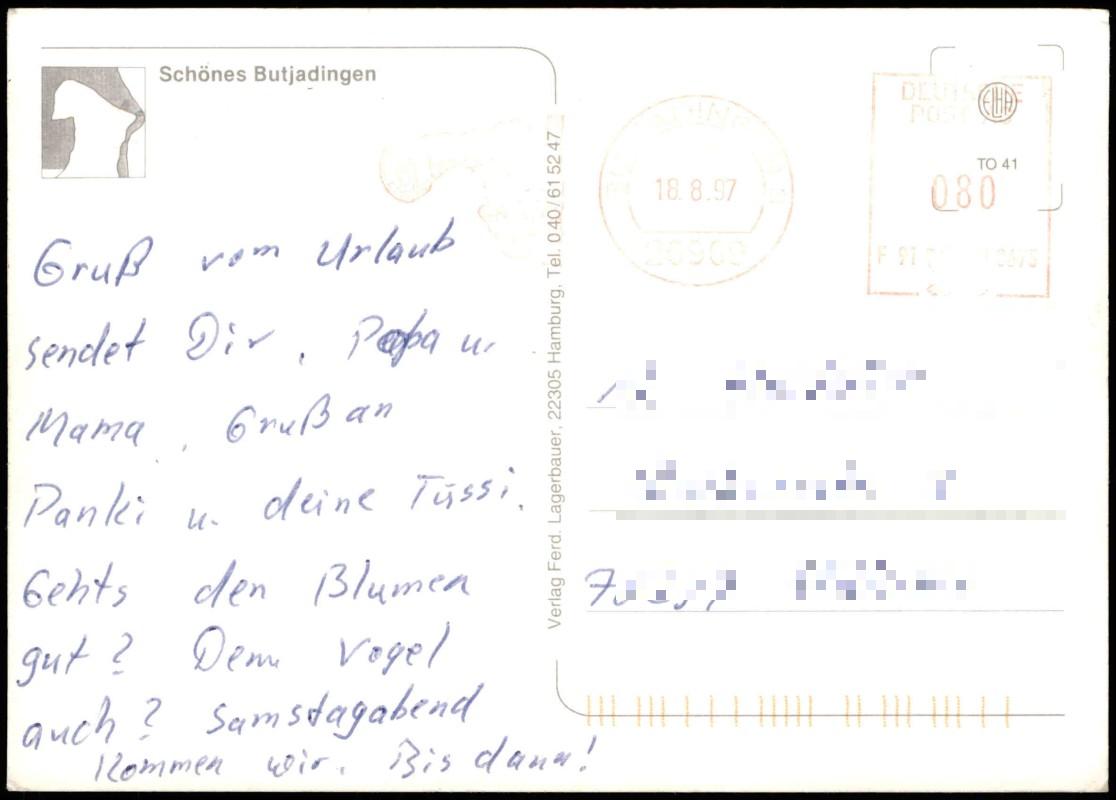 Schönes Butjadingen
Gruß vom Urlaub
sendet Dir, Papa u.
Mama, Gruß an
Panki u. deine Tussi.
Gehts den Blumen
gut? Dem Vogel
auch? Samstagabend
kommen wir. Bis dann!
Verlag Ferd. Lagerbauer, 22305 Hamburg, Tel. 040/615247
18.8.97
26969
DEUTSCHE
POST AG
TO 41
080